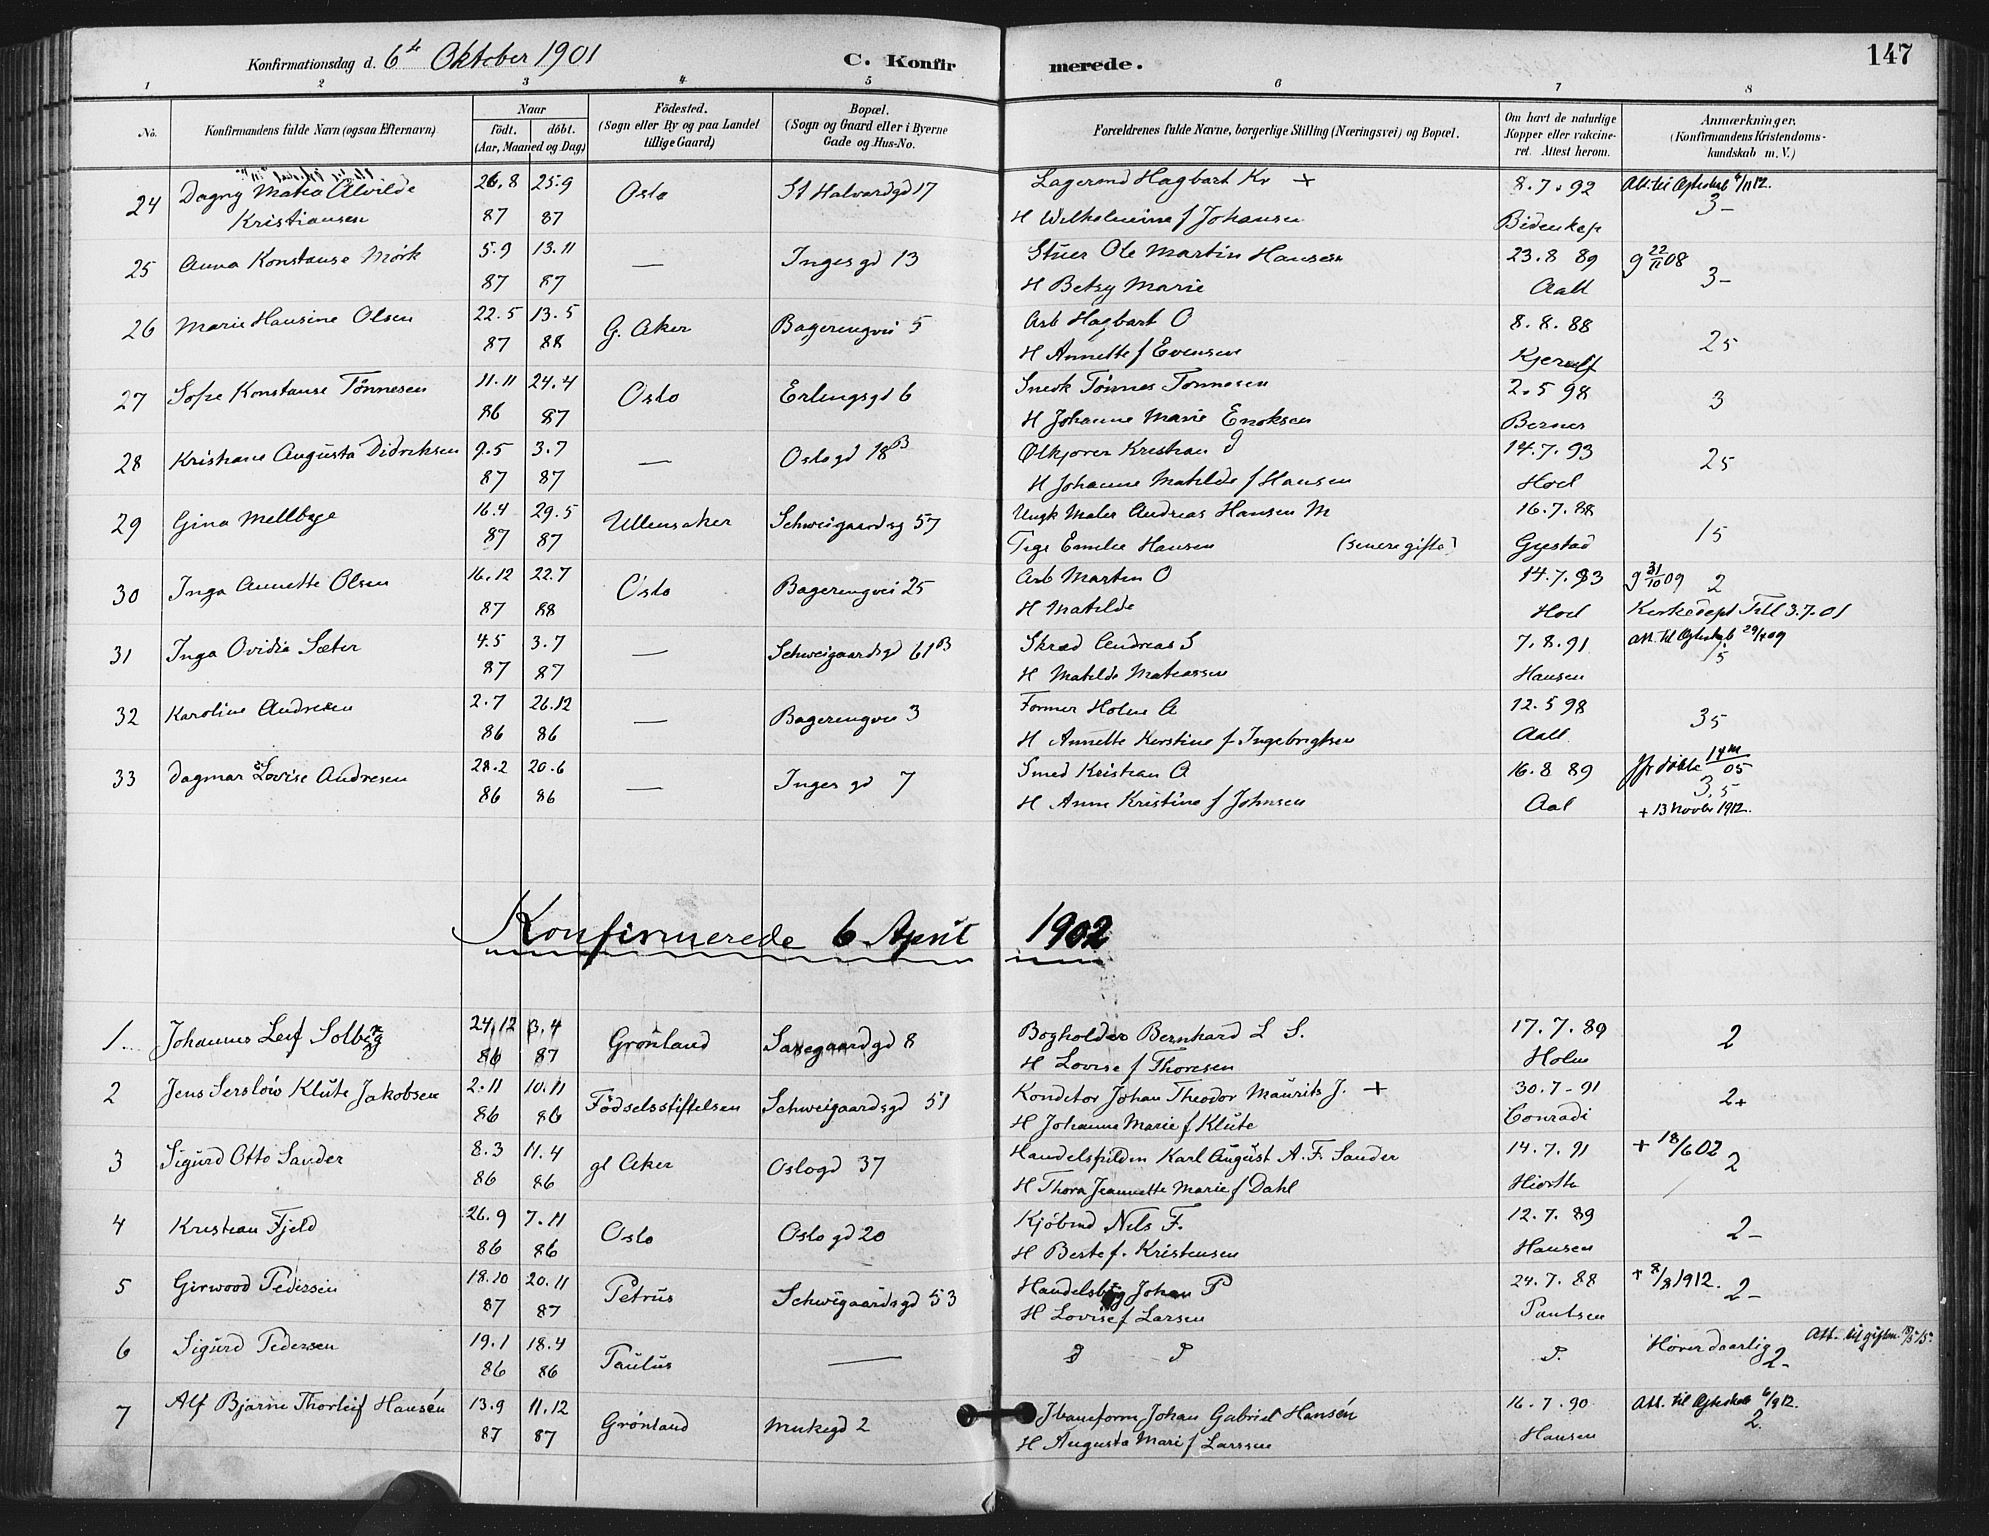 Konfirmationsdag d. 6te Oktober 1901 C. Konfir merede. 147
1 2 3 4 5 6 7 8
No. Konfirmandens fulde Navn (ogsaa Efternavn) Naar födt. döbt. (Aar, Maaned og Dag) Födested. (Sogn eller By og paa Landet tillige Gaard) Bopæl. (Sogn og Gaard eller i Byerne Gade og Hus-No. Forældrenes fulde Navne, borgerlige Stilling (Næringsvei) og Bopæl. Om havt de naturlige Kopper eller vakcineret. Attest herom. Anmærkninger. (Konfirmandens Kristendomskundskab m. V.)
24 Dagny Matea Alvilde 26.8 25.9 Oslo St Halvardgd 17 Lagermd Hagbart Kr + 8.7.92 Att. til Ægteskab 6/11 12.
Kristiansen 87 87 H Wilhelmine f Johansen Bidenkap 3-
25 Anna Konstanse Mörk 5.9 13.11 — Inges gd 13 Stuer Ole Martin Hansen 23.8 89 g 22/11 08
87 87 H Betzy Marie Aall 3-
26 Marie Hansine Olsen 22.5 13.5 G. Aker Bagerengvei 5 Arb Hagbart O 8.8.88
87 88 H Annette f Evensen Kjerulf 25
27 Sofie Konstanse Tönnesen 11.11 24.4 Oslo Erlingsgd 6 Snedk Tönnes Tonnesen 2.5 98
86 87 H Johanne Marie Enoksen Berner 3
28 Kristiane Augusta Didriksen 9.5 3.7 — Oslogd 18B Ölkjorer Kristian D 14.7.93
87 87 H Johanne Matilde f Hansen Hoel 25
29 Gina Mellbye 16.4 29.5 Ullensaker Schweigaardsg 57 Ungk Maler Andreas Hansen M 16.7.88
87 87 Pige Emilie Hansen (senere gifte) Gjestad 15
30 Inga Annette Olsen 16.12 22.7 Oslo Bagerengvei 25 Arb Martin O 14.7.93 g 31/10 09 2
87 88 H Matilde Hoel Kirkedept Till 3.7.01
31 Inga Ovidia Sæter 4.5 3.7 — Schweigaardsgd 61B Skræd Andreas S 7.8.91 Att. til Ægteskab 29/4 09
87 87 H Matilde Mateassen Hansen 15
32 Karoline Andresen 2.7 26.12 — Bagerengvei 3 Former Holm A 12.5 98
86 86 H Annette Kirstine f Ingebrigtsen Aall 35
33 Dagmar Lovise Andresen 28.2 20.6 — Inges gd 7 Smed Kristian A 16.8 89
86 86 H Anne Kristine f Johnsen Aal 3,5
+ 13 Novbr 1912.
Konfirmerede 6 April 1902
1 Johannes Leif Solberg 24.12 3.4 Grönland Saxegaardgd 8 Bogholder Bernhard L S. 17.7.89
86 87 H Lovise f Thoresen Holm 2
2 Jens Serslöw Klüte Jakobsen 2.11 10.11 Födselsstiftelsen Schweigaardsgd 51 Konditor Johan Theodor Maurits J. + 30.7-91
86 86 H Johanne Marie f Klüte Conradi 2+
3 Sigurd Otto Sander 8.3 11.4 gl Aker Oslogd 37 Karl August A. F. Sander 14.7.91 + 18/6 02
86 86 H Thora Jeannette Marie f Dahl Hiorth 2
4 Kristian Fjeld 26.9 7.11 Oslo Oslo gd 20 Kjöbmd Nils F. 12.7.89
86 86 H Berte f. Kristensen Hansen 2-
5 Girwood Pedersen 18.10 20.11 Petrus Schweigaardsgd 53 Johan P 24.7.88 + 8/8 1912.
87 87 H Lovise f Larsen Paulsen 2-
6 Sigurd Pedersen 19.1 18.4 Paulus — Hörer daarlig
86 86 2-
7 Alf Bjarne Thorleif Hansén 13.9 11.12 Grönland Munkegd 2 Johan Gabriel Hansén 16.7.90 Att. til Ægteskab 6/9 12.
87 87 H Augusta Mari f Larssen Hansen 2